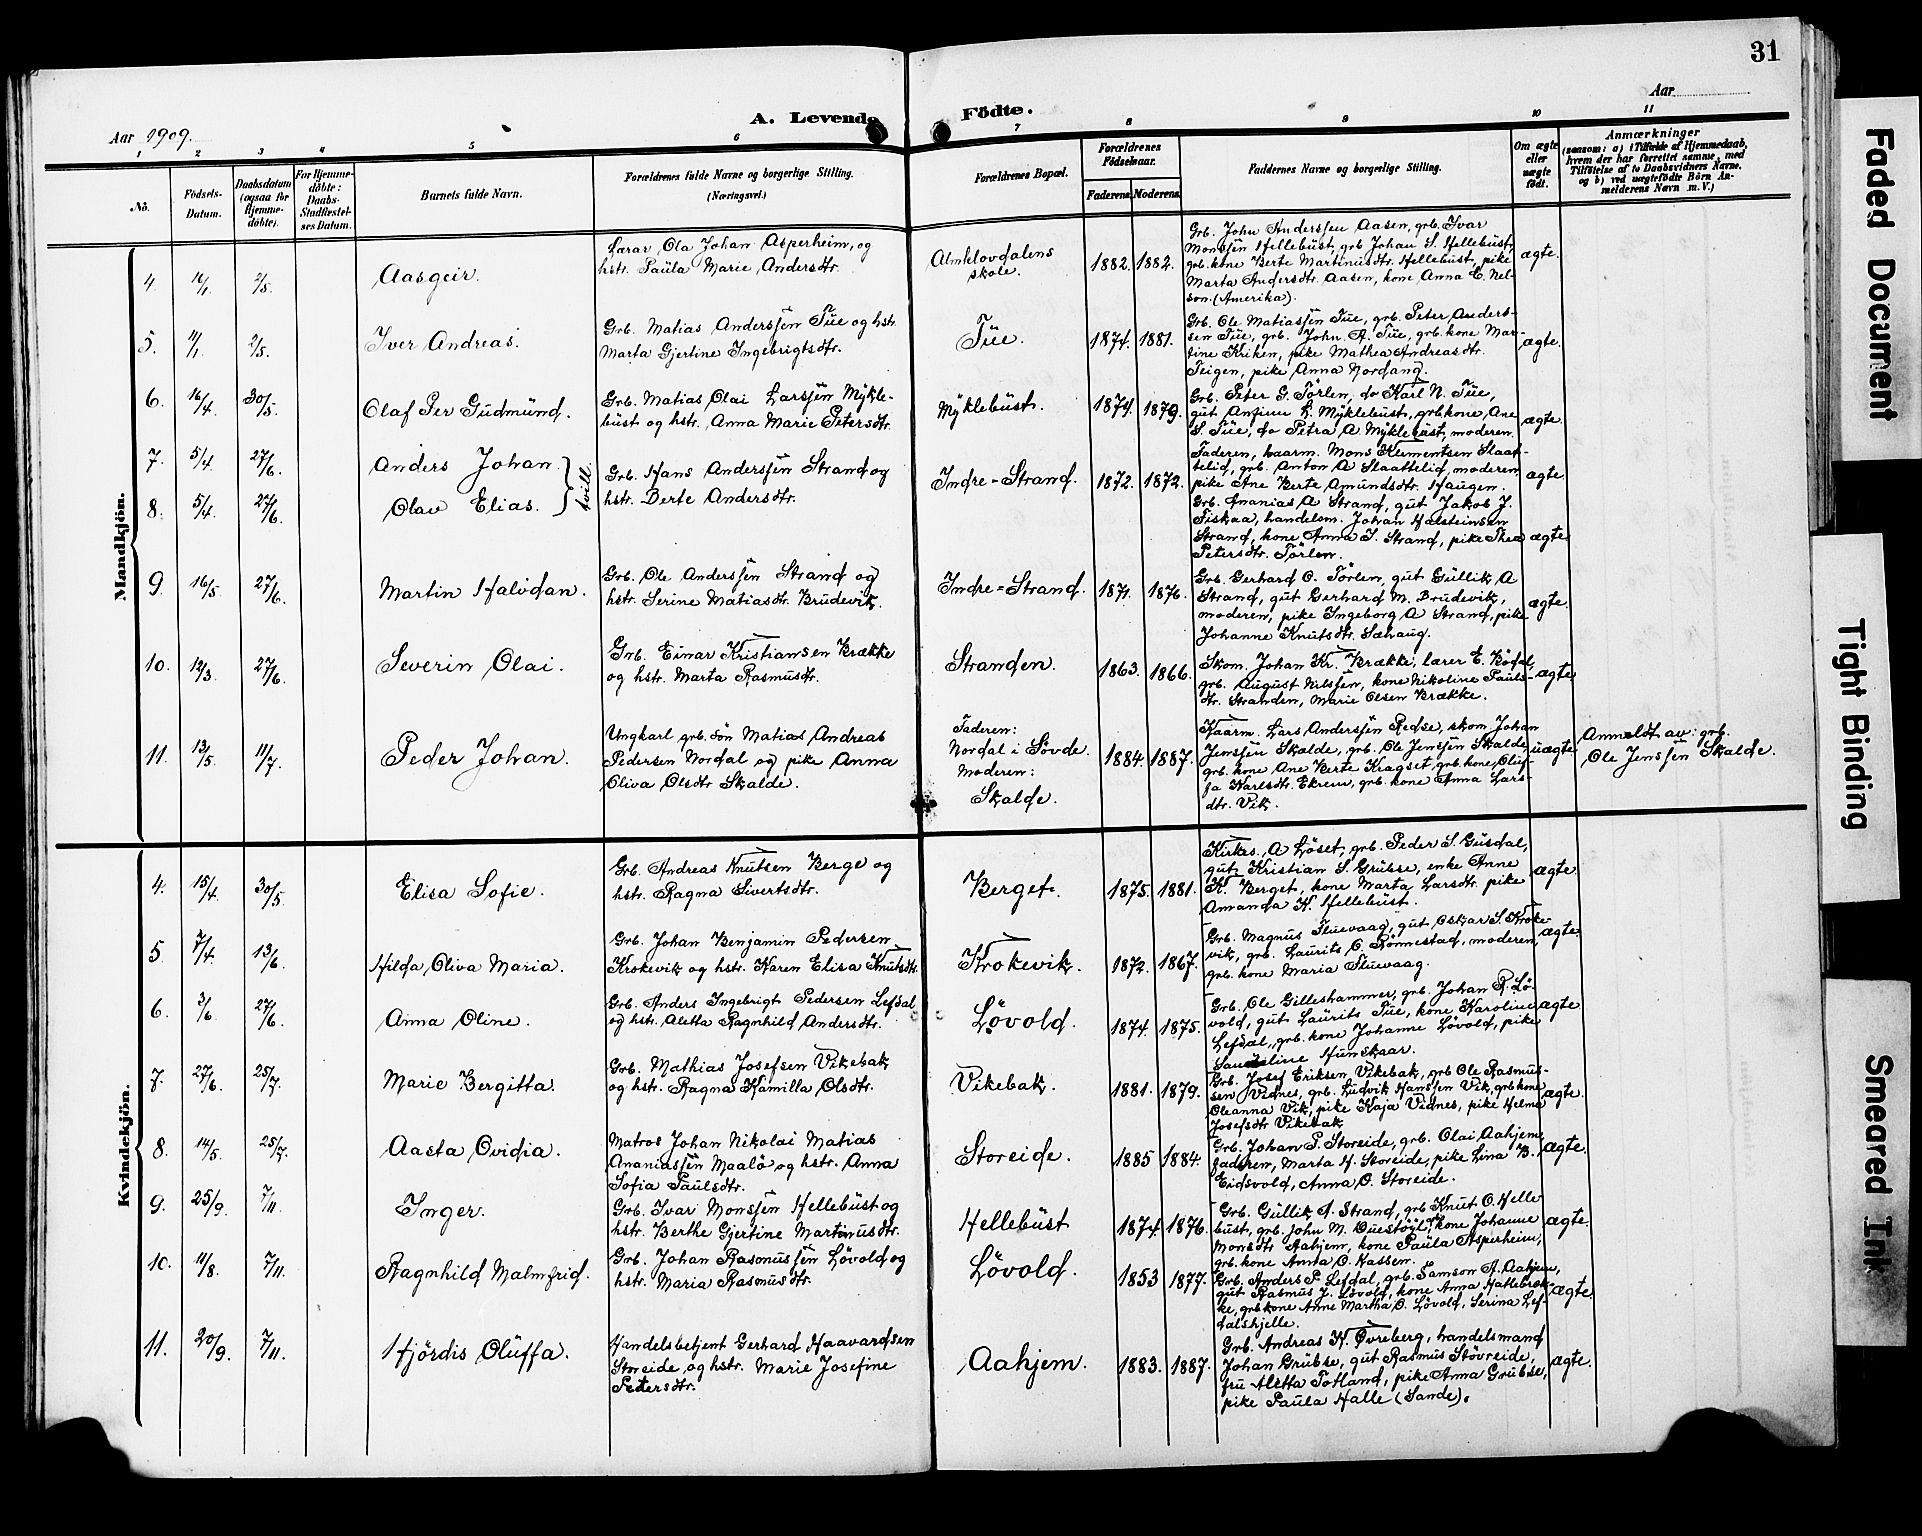 31
A. Levende Födte.
Aar 1909.
Aar
1 2 3 4 5 6 7 8 9 10 11
No.
Födsels-Datum.
Daabsdatum (ogsaa for Hjemme-döbte).
For Hjemme-döbte: Daabs-Stadfæstel-ses Datum.
Barnets fulde Navn.
Forældrenes fulde Navne og borgerlige Stilling.
(Næringsvei.)
Forældrenes Bopæl.
Forældrenes Födselsaar.
Faderens. Moderens.
Faddernes Navne og borgerlige Stilling.
Om ægte eller uægte født.
Anmærkninger
(saasom: a) i Tilfælde af Hjemmedaab,
hvem der har forrettet samme, med
Tilföielse af to Daabsvidners Navne,
og b) ved uægtefödte Börn An-
melderens Navn m. V.)
Mandkjön.
4. 2/5. Aasgeir.
Lærar Ola Johan Asperheim, og
hstr. Paula Marie Andersdtr.
Almklovdalens
skole.
1882. 1882.
Grb. John Anderssen Aasen, grb. Ivar
Monssen Hellebust, grb Johan S. Hellebust,
grb. kone Berte Martinusdtr. Hellebust, pike
Marta Andersdtr. Aasen, kone Anna E. Nel-
son. (Amerika).
ægte.
5. 11/1. 2/5. Iver Andreas.
Grb. Matias Anderssen Tue og hstr.
Marta Gjertine Ingebrigtsdtr.
Tue.
1874. 1881.
Grb. Ole Matiassen Tue, grb. Peter Anders-
sen Tue, grb. John A. Tue, grb. kone Mar-
tine Kriken, pike Mathea Andreasdtr.
Teigen, pike Anna Nordang.
ægte.
6. 16/4. 30/5. Olaf Per Gudmund.
Grb. Matias Olai Larssen Mykle-
bust og hstr. Anna Marie Petersdtr.
Myklebust.
1874. 1879.
Grb. Peter G. Törlen, do Karl N. Tue,
gut Anfinn L. Myklebust, grb kone Ane
S. Tue, do Petra A Myklebust, moderen.
ægte.
7. 5/4. 27/6. Anders Johan.
8. 5/4. 27/6. Olav Elias.
tvill.
Grb. Hans Anderssen Strand og
hstr. Berte Andersdtr.
Indre=Strand.
1872. 1872.
Faderen, haarm. Mons Klementsen Slaat-
telid, grb. Anton A Slaattelid, moderen,
pike Ane Berte Amundsdtr. Haugen.
ægte.
Grb. Ananias A Strand, gut Jakob J.
Fiskaa, handelsm. Johan Halsteinsen
Strand, kone Anna J. Strand, pike Thea
Petersdtr. Törlen.
ægte
9. 16/5. 27/6. Martin Halvdan.
Grb. Ole Anderssen Strand og
hstr. Serine Matiasdtr. Brudevik.
Indre=Strand.
1871. 1876.
Grb. Gerhard O. Törlen, gut Gullik A
Strand, gut Gerhard M. Brudevik,
moderen, pike Ingeborg A Strand, pike
Johanne Knutsdtr. Sæhaug.
ægte.
10. 12/3. 27/6. Severin Olai.
Grb. Einar Kristiansen Brække
og hstr. Marta Rasmusdtr.
Stranden.
1863. 1866.
Skom. Johan Kr. Brække, lærer E. Bödal,
grb. August Nilssen, kone Nikoline Pauls-
dtr. Stranden, Marie Olsen Brække.
ægte
11. 13/5. 11/7. Peder Johan.
Ungkarl grb. sön Matias Andreas
Pedersen Nordal og pike Anna
Oliva Olsdtr Skalde.
Faderen:
Nordal i Sövde
Moderen:
Skalde.
1884. 1887.
Haarm. Lars Anderssen Redse, skom Johan
Jenssen Skalde, grb. Ole Jenssen Skalde,
grb. kone Ane Berte Kragset, grb. kone Oluf-
fa Karlsdtr. Ekrem, grb. kone Anna Lars-
dtr. Vik.
uægte
Anmeldt av: grb.
Ole Jenssen Skalde.
Kvindekjön.
4. 15/4. 30/5. Elisa Sofie.
Grb. Andreas Knutsen Berge og
hstr. Ragna Sivertsdtr.
Berget.
1875. 1881.
Kirkes. A Löset, grb. Peder S. Gusdal,
gut Kristian S. Grubse, enke Anne
K. Berget, kone Marta Larsdtr. pike
Amanda K. Hellebust.
ægte.
5. 7/4. 13/6. Hilda Oliva Maria.
Grb. Johan Benjamin Pedersen
Krokevik og hstr. Karen Elisa Knutsdtr.
Krokevik.
1872. 1867.
Grb. Magnus Fluevaag, gut Oskar S. Kroke-
vik, grb. Laurits O. Rönnestad, moderen,
grb. kone Maria Fluevaag.
ægte.
6. 3/6. 27/6. Anna Oline.
Grb. Anders Ingebrigt Pedersen Lefdal
og hstr. Aletta Ragnhild Andersdtr.
Lövold.
1874. 1875.
Grb. Ole Gilleshammer, grb. Johan R. Lö-
vold, gut Laurits Tue, kone Karoline
Lefdal, grb. kone Johanne Lövold, pike
Hunskaar.
ægte
7. 27/6. 25/7. Marie Bergitta.
Grb. Mathias Josefsen Vikebak
og hstr. Ragna Kamilla Olsdtr.
Vikebak.
1881. 1879.
Grb. Josef Eriksen Vikebak, grb Ole Rasmus-
sen Vidnes, grb. Ludvik Hanssen Vik, grb kone
Oleanna Vik, pike Kaja Vidnes, pike Helma
Josefsdtr Vikebak
ægte.
8. 14/5. 25/7. Aasta Ovidia.
Matros Johan Nikolai Matias
Ananiassen Maalö og hstr. Anna
Sofia Paulsdtr.
Storeide.
1885 1884.
Grb. Johan P. Storeide, grb. Olai Aahjem,
faderen, Marta H. Storeide, pike Lina B.
Eidsvold, Anna O. Storeide.
ægte.
9. 25/9. 7/11. Inger.
Grb. Ivar Monssen Hellebust og
hstr. Berthe Gjertine Martinusdtr.
Hellebust
1874. 1876.
Grb. Gullik A. Strand, grb Knut O. Helle
bust, grb. John M. Duestöyl, kone Johanne
Monsdtr Aahjem, kone Paula Asperheim,
grb. kone Anna O. Kassen.
ægte.
10. 11/8. 7/11. Ragnhild Malmfrid.
Grb. Johan Rasmussen Lövold og
hstr. Maria Rasmusdtr.
Lövold.
1853 1877.
Grb. Anders P. Lefdal, grb. Samson A. Aahjem,
gut Rasmus J. Lövold, kone Anna Hallebræk-
ke, grb kone Anne Martha O. Lövold, Serina Lef-
dalshjelle.
ægte.
11. 20/9. 7/11. Hjördis Oluffa.
Handelsbetjent Gerhard Haavardsen
Storeide og hstr. Marie Josefine
Petersdtr.
Aahjem.
1883. 1887.
Grb. Andreas K. Øvreberg, handelsmand
Johan Grubse, gut Rasmus Stövreide,
fru Aletta Totland, pike Anna Grubse,
pike Paula Halle (Sande).
ægte.
Faded Document
Tight Binding
Smeared Ink